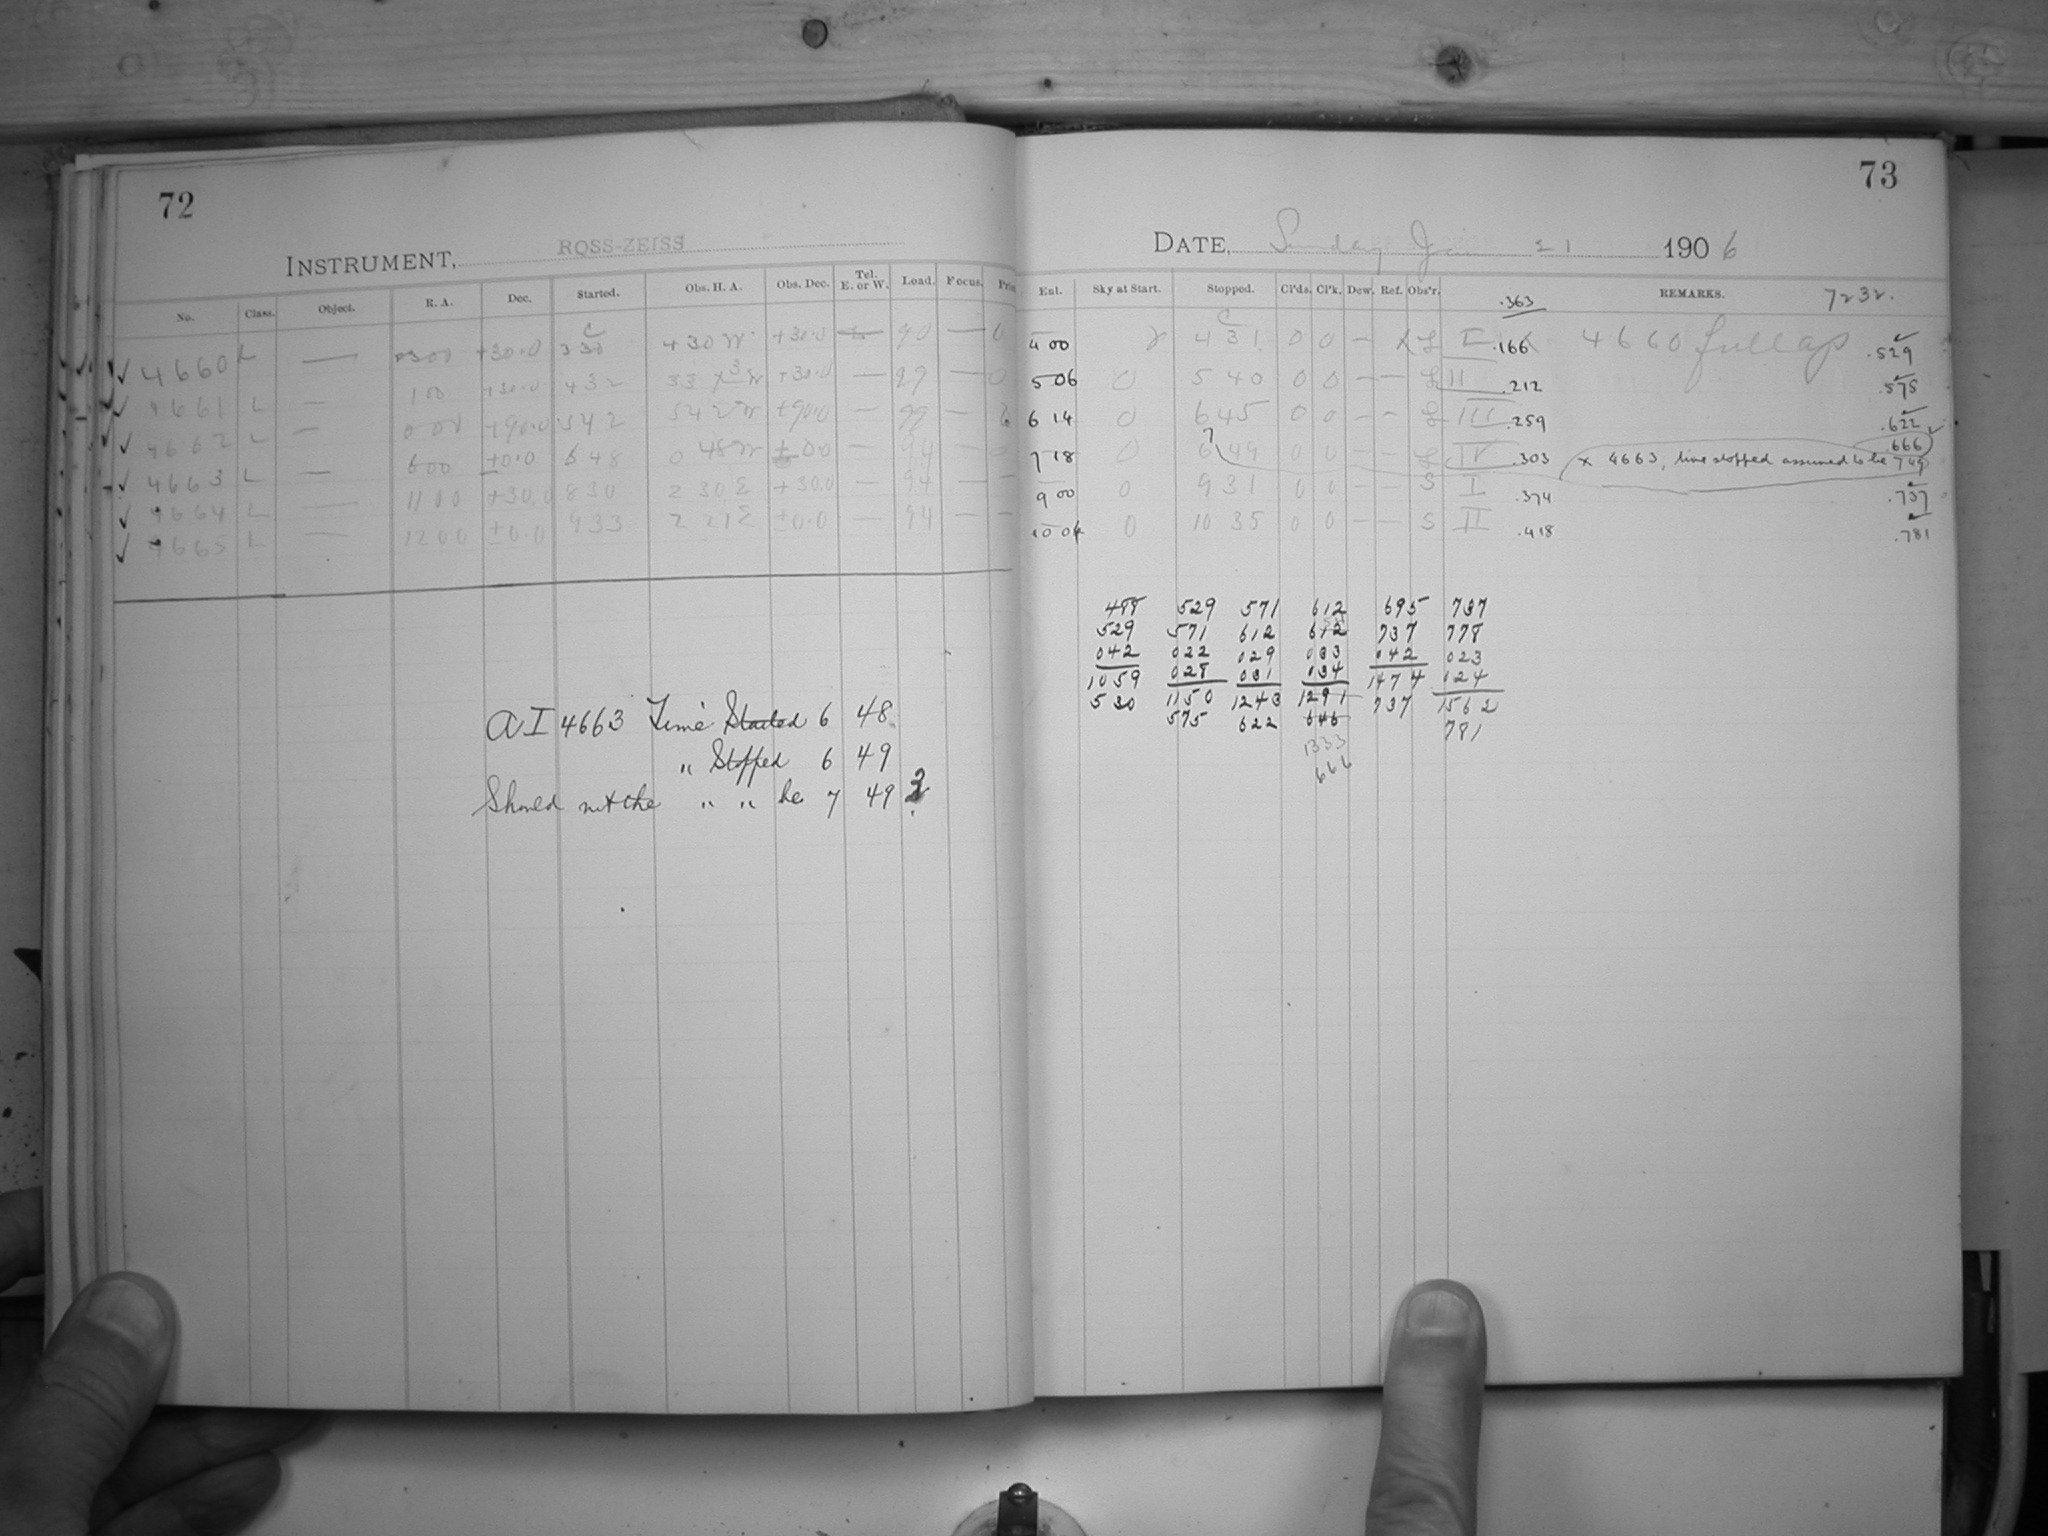 72
INSTRUMENT, ROSS-ZEISS
No. Class. Object. R. A. Dec. Started. Obs. H. A. Obs. Dec. Tel. E. or W. Load. Focus.
4660 L — +30.0 330 +30.0 90 — 0
4661 L — 100 +30.0 432 +30.0 — 99 — 0
4662 L — 000 +90.0 542 542W +90.0 — 99 —
4663 L — 600 ±0.0 648 0 48W — 94 —
4664 L — 1100 +30.0 830 2 30E +30.0 — 94 — —
4665 L — 1200 ±0.0 933 2 21E ±0.0 — 94 — —
AI 4663 Time Started 6 48
" Stopped 6 49
Should not the " " be 7 49?
73
DATE, Sunday Jan 21 1906
Sky at Start. Stopped. Cl'ds. Cl'k. Dew. Ref. Obs'r. REMARKS. 7232.
.363
4 00 431 0 0 — I .166 4660 full ap .529
5 06 0 540 0 0 — — II .212 .575
6 14 0 645 0 0 — — III .259 .622
7 18 0 649 0 0 IV .303 x 4663, time stopped assumed to be 749 .666
9 00 0 931 0 0 — — S I .374 .737
10 04 0 10 35 0 0 — — S II .418 .781
488 529 571 612 695 737
529 571 612 612 737 778
042 022 029 033 042 023
1059 028 031 034 1474 024
530 1150 1243 1291 737 1562
575 622 646 781
1333
666